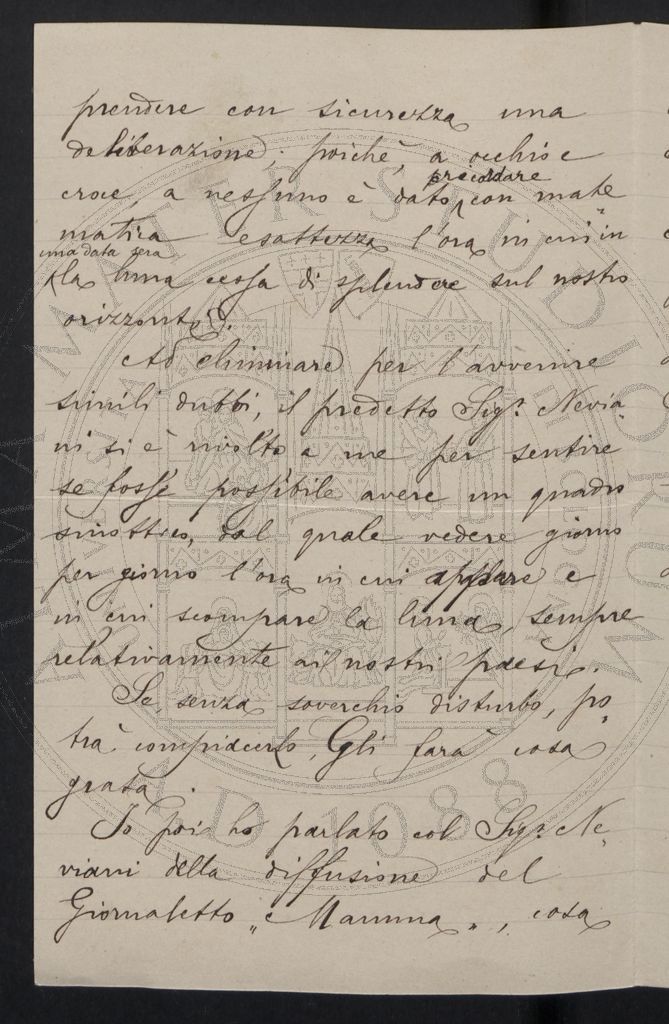 prendere con sicurezza una
deliberazione; poichè, a occhio e
croce, a nessuno è dato precordare con mate
matica esattezza l'ora in cui in
una data sera
la luna cessa di splendere sul nostro
orizzonte.
Ad eliminare per l'avvenire
simili dubbi, il predetto Sigr. Nevia-
ni si è rivolto a me per sentire
se fosse possibile avere un quadro
sinottico, dal quale vedere giorno
per giorno l'ora in cui appare e
in cui scompare la luna, sempre
relativamente ai nostri paesi.
Se, senza soverchio disturbo, po
trà compiacerlo, Gli farà cosa
grata.
Io poi ho parlato col Sigr. Ne-
viani della diffusione del
Giornaletto „Mamma„, cosa
ALMA MATER STUDIORUM
A.D. 1088